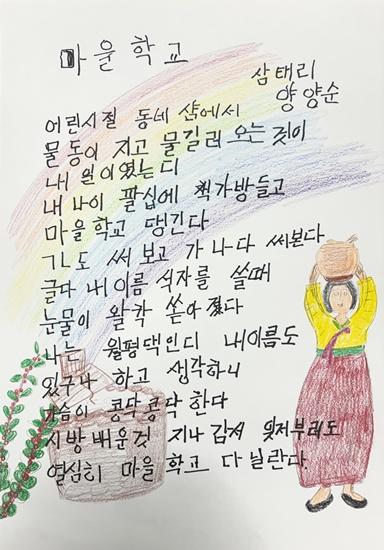 마을 학교
삼태리
양양순
어린시절 동네 샵에서
물동이 지고 물길러 오는것이
내 일이였는디
내 나이 팔십에 책가방들고
마을학교 댕긴다
ㄱㄴ도 써 보고 가 나 다 써본다
글다 내이름 식자를 쓸때
눈물이 왈칵 쏟아졌다
나는 월평댁인디 내이름도
있구나 하고 생각하니
가슴이 콩닥콩닥 한다
시방배운것 지나감서 잊저부리도
열심히 마을 학교 다닐란다